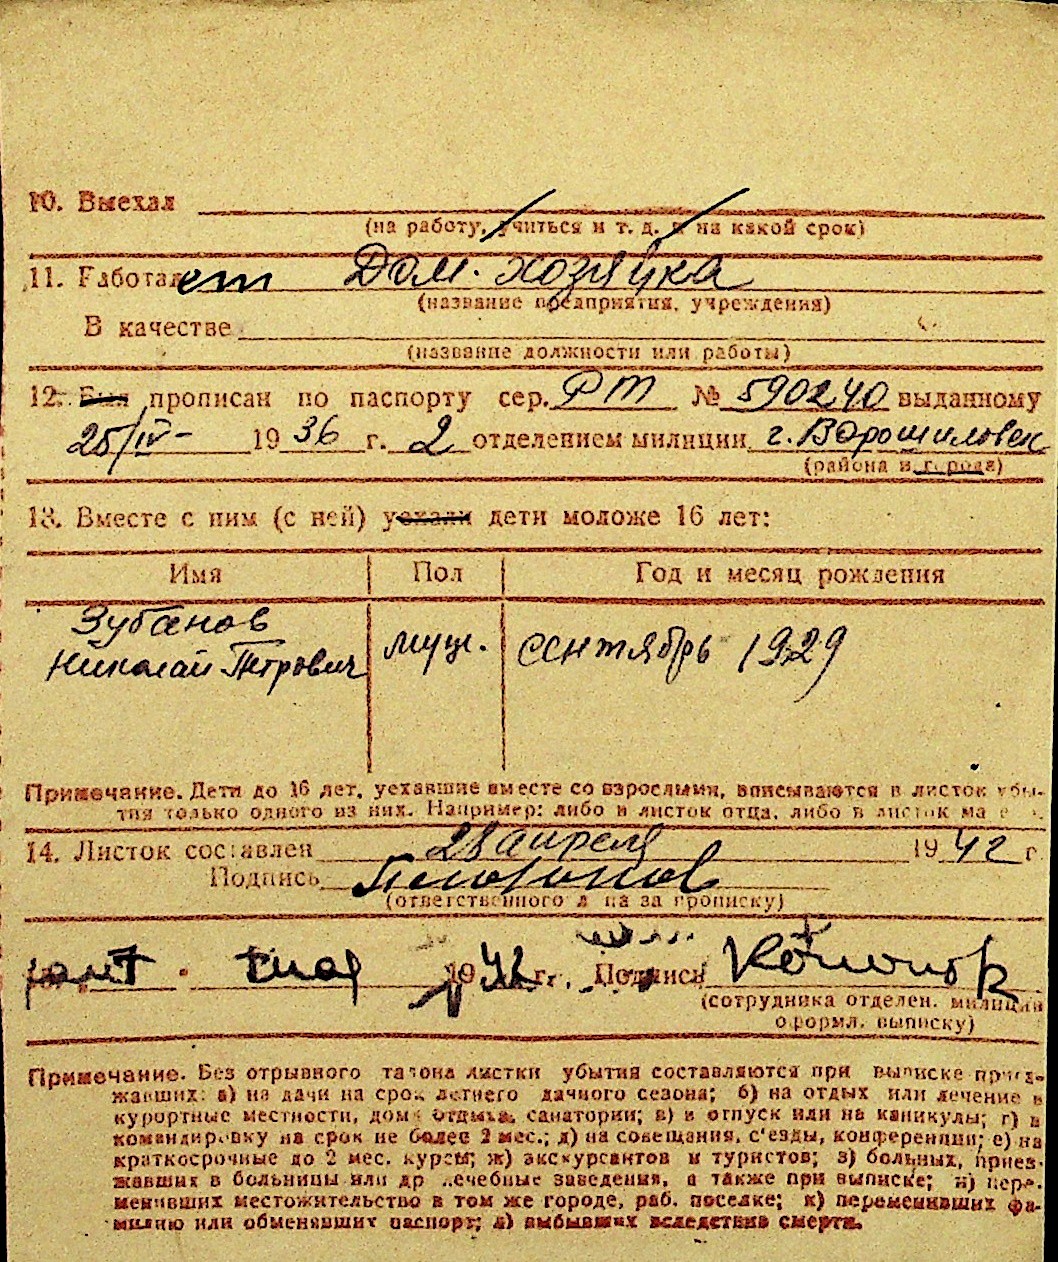 10. Выехал
(на работу, учиться и т. д. и на какой срок)
11. Работает Дом. хозяйка
(название предприятия, учреждения)
В качестве
(название должности или работы)
12. Был прописан по паспорту сер. РТ № 590240 выданному
25/IV- 1936 г. 2 отделением милиции г. Ворошиловск
(района и города)
13. Вместе с ним (с ней) уехали дети моложе 16 лет:
Имя Пол Год и месяц рождения
Зубанов
Николай Петрович муж. сентябрь 1929
Примечание. Дети до 16 лет, уехавшие вместе со взрослыми, вписываются в листок убы-
тия только одного из них. Например: либо в листок отца, либо в листок
14. Листок составлен 28 апреля 1942 г
Подпись
(ответственного лица за прописку)
1942 г. Подпись
(сотрудника отделен. милиции
оформл. выписку)
Примечание. Без отрывного талона листки убытия составляются при выписке приез-
жавших: а) на дачи на срок летнего дачного сезона; б) на отдых или лечение в
курортные местности, дома отдыха, санатории; в) в отпуск или на каникулы; г) в
командировку на срок не более 2 мес.; д) на совещания, с'езды, конференции; е) на
краткосрочные до 2 мес. курсы; ж) экскурсантов и туристов; з) больных, приез-
жавших в больницы или др лечебные заведения, а также при выписке; и) пере-
менивших местожительство в том же городе, раб. поселке; к) переменивших фа-
милию или обменявших паспорт; л) выбывших вследствие смерти.